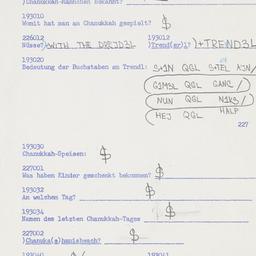 )Chanukkah-Männchen bekannt?
193010
Womit hat man an Chanukkah gespielt? $
226012 193012
Nüsse?)WITH THE DREJD3L )Trend(er)l? )+TREND3L
193020
Bedeutung der Buchstaben am Trendl: S+1N QGL S+TEL A3N/
G1M3L QGL GANC/)
NUN QGL N1KS/)
HEJ QGL HALP
227
193030
Chanukkah-Speisen: $
227001
Was haben Kinder geschenkt bekommen? $
193032
An welchem Tag? $
193034
Namen des letzten Chanukkah-Tages $
227002
)Chanuka(s)bamlebesch? $
193040 193041